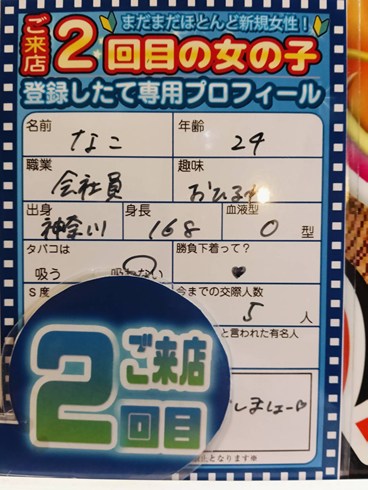 まだまだほとんど新規女性!
ご来店2回目の女の子
登録したて専用プロフィール
名前 なこ
年齢 24
職業 会社員
趣味 おひるね
出身 神奈川
身長 168
血液型 O 型
タバコは 吸う 吸わない
勝負下着って? ♥
S度
今までの交際人数 5 人
と言われた有名人
しましょー♡
となります※
ご来店
2回目